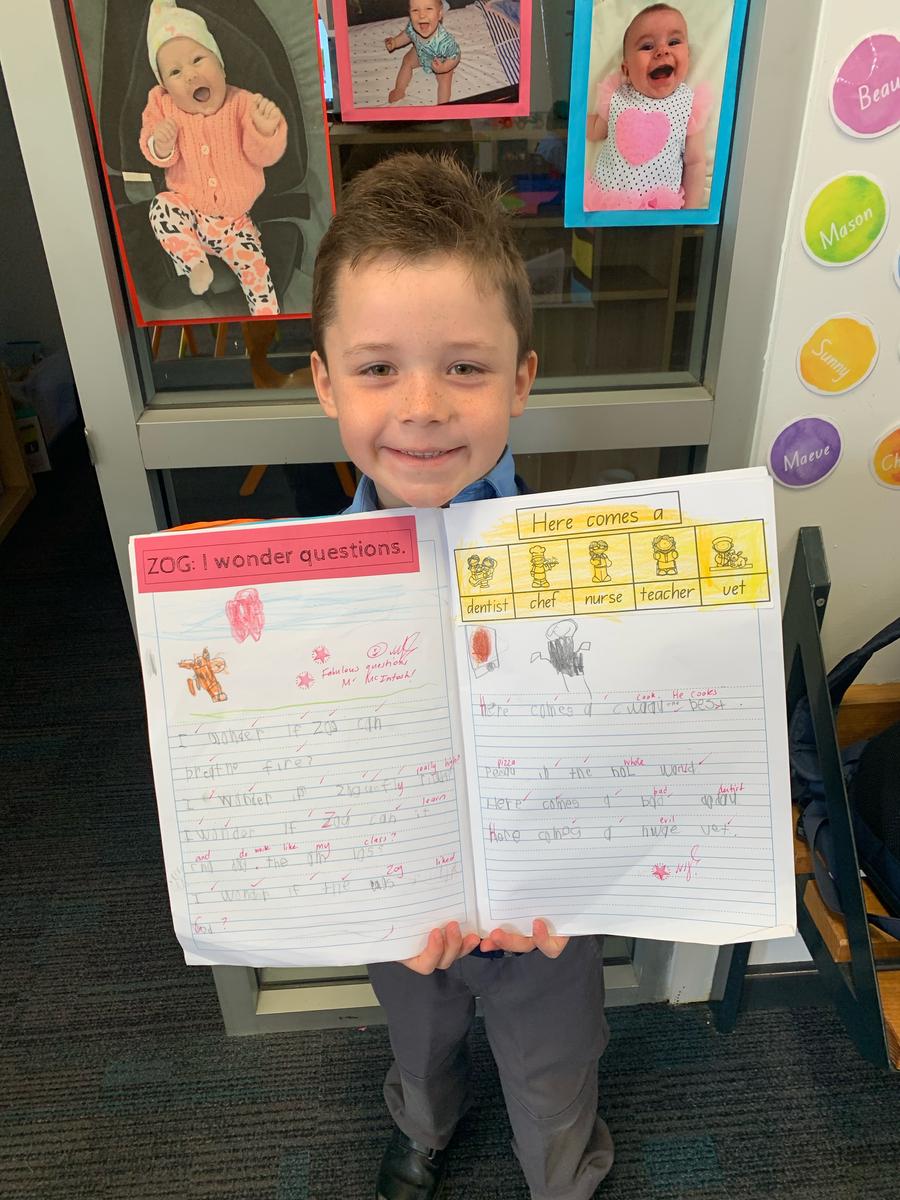 Beau
Mason
Sunny
Maeve
Ch
ZOG: I wonder questions.
Fabulous questions
Mr McIntosh!
I wonder if Zog can
breathe fire?
really high?
I wonder if Zog fly
learn
I wonder if Zog can it
and do work like my class?
the
Zog liked
I wonder if the
God ?
Here comes a
dentist chef nurse teacher vet
cook. He cookes
Here comes a best .
pizza whole
in the hol world
bad dentist
Here comes a bad
evil
Here comes a vet.